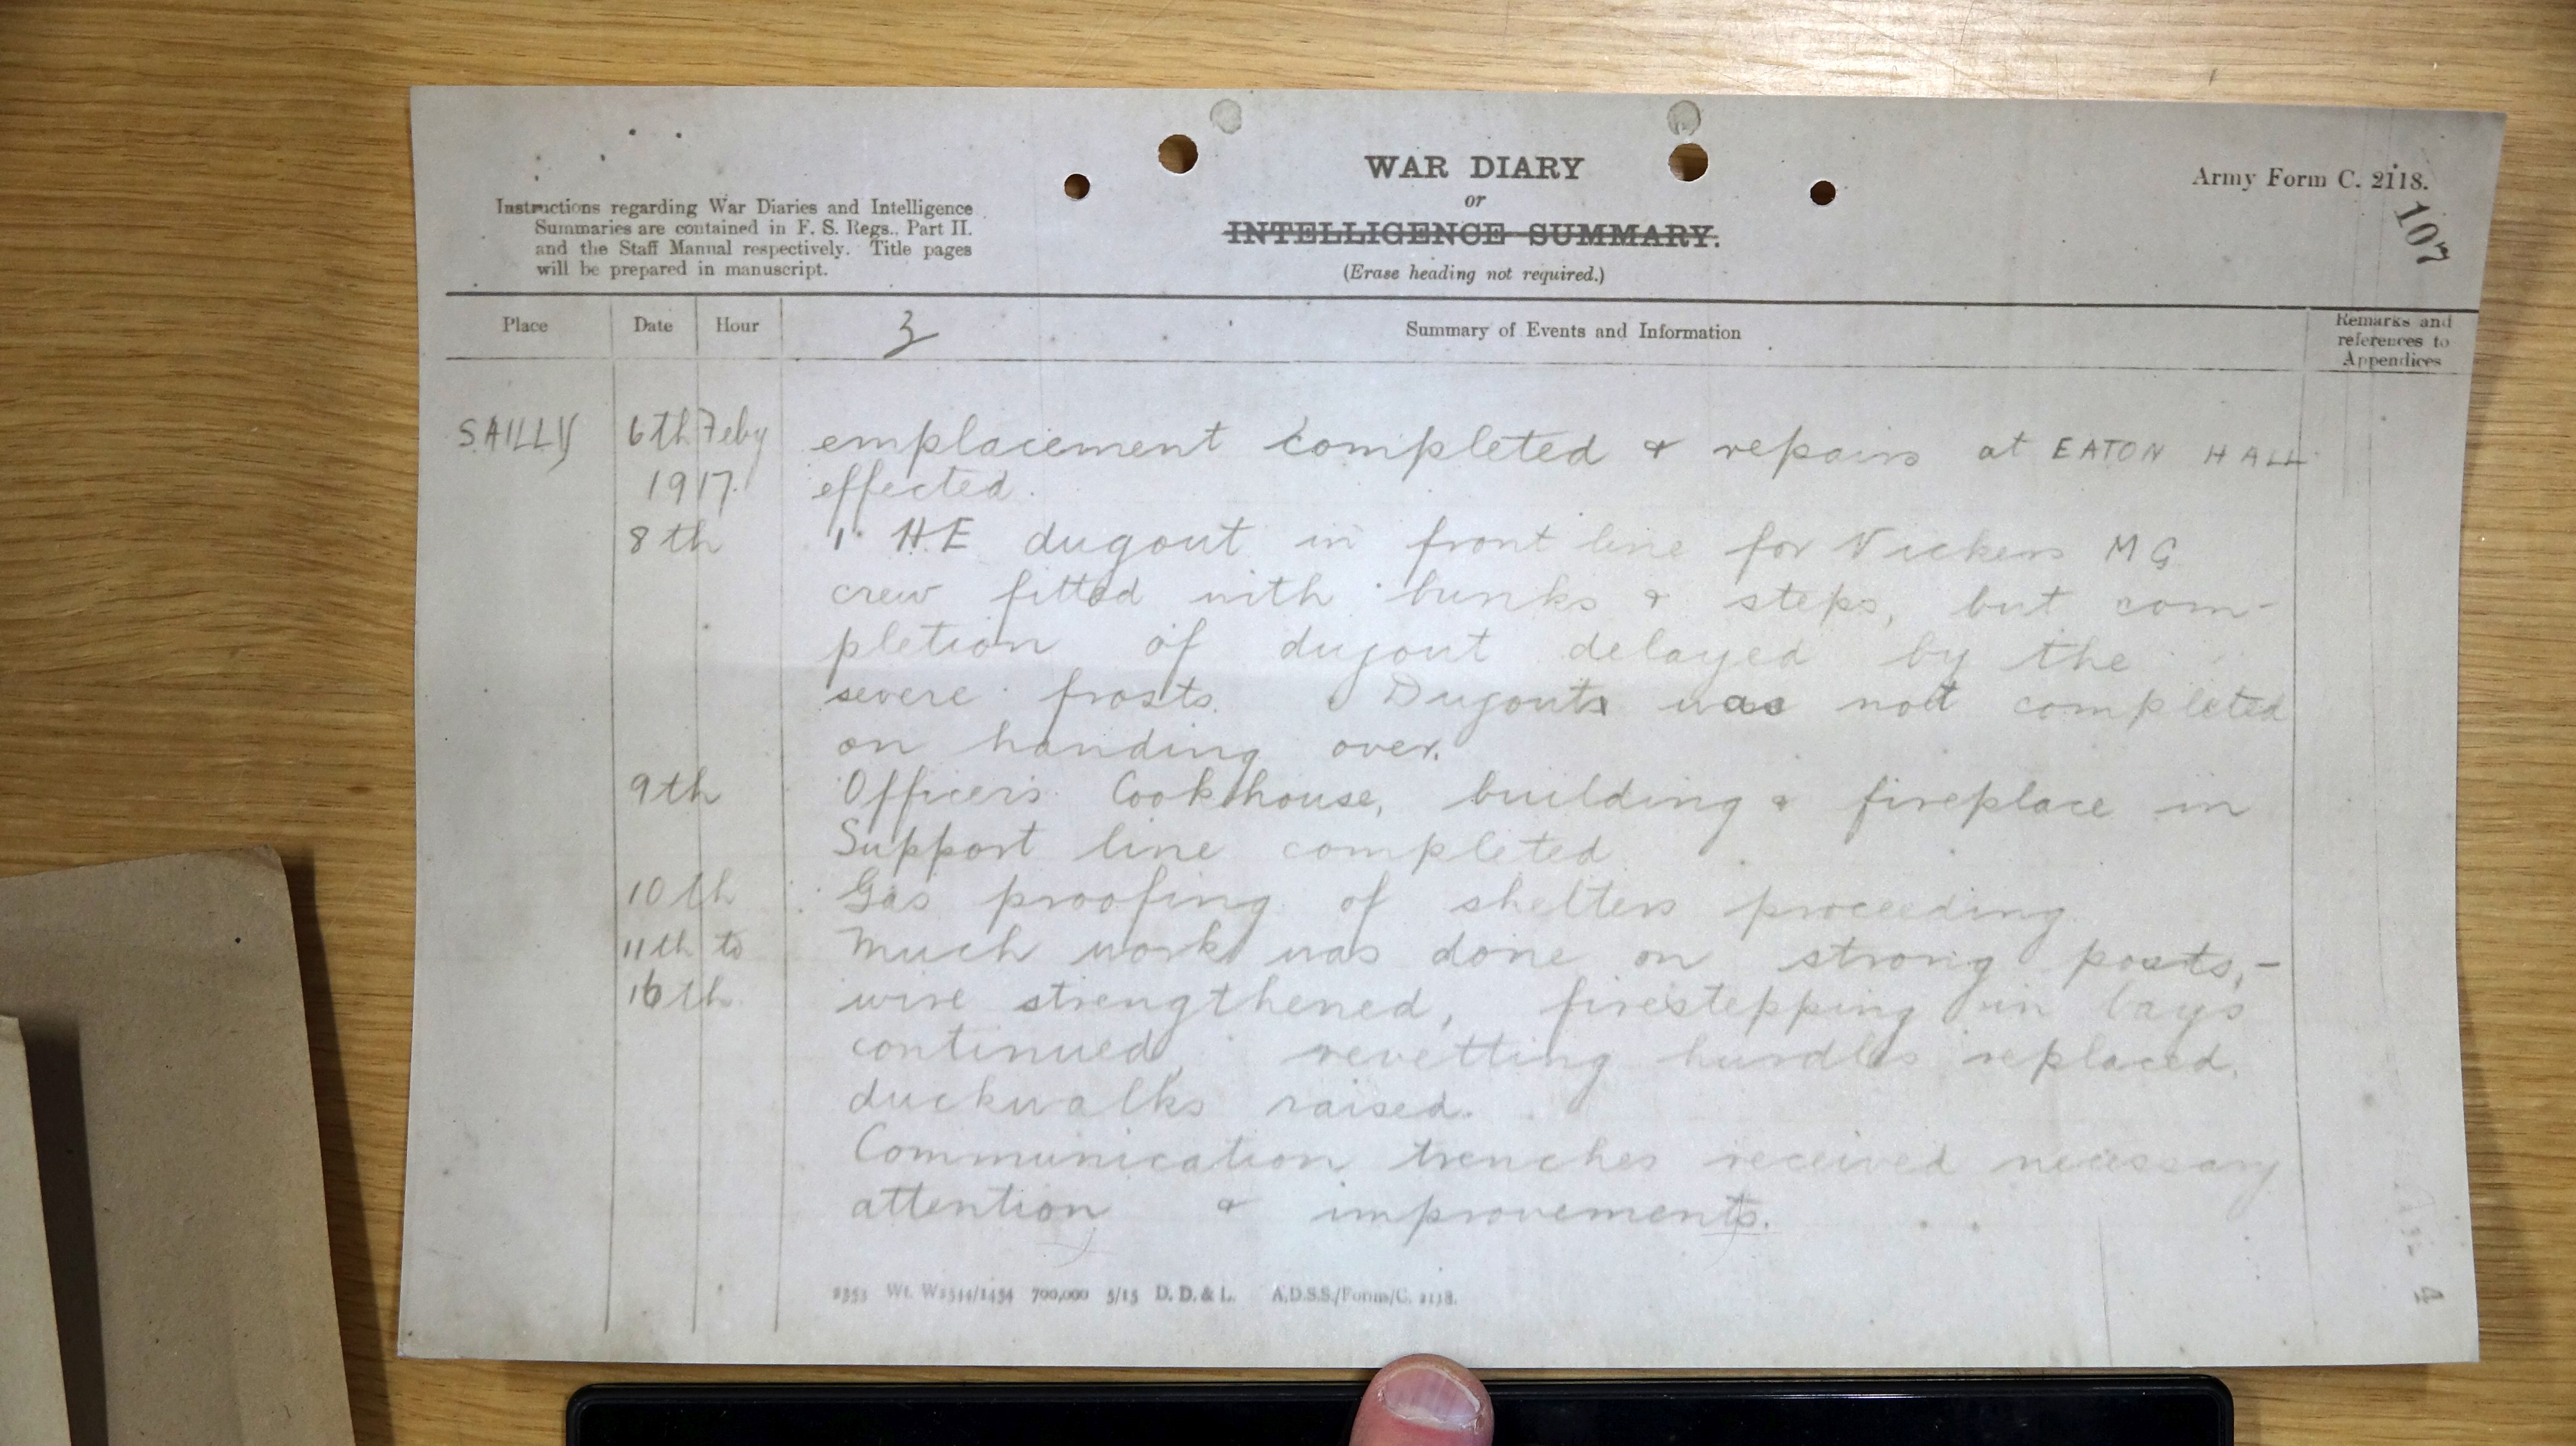 WAR DIARY
or
INTELLIGENCE SUMMARY.
(Erase heading not required.)
Army Form C. 2118.
107
Instructions regarding War Diaries and Intelligence
Summaries are contained in F. S. Regs., Part II.
and the Staff Manual respectively. Title pages
will be prepared in manuscript.
Place Date Hour 3 Summary of Events and Information Remarks and
references to
Appendices
SAILLY 6th Feby emplacement completed & repairs at EATON HALL
1917. effected.
8th 1 H.E dugout in front line for Vickers MG
crew fitted with bunks & steps, but com-
pletion of dugout delayed by the
severe frosts. Dugout was not completed
on handing over.
9th Officers Cookhouse, building & fireplace in
Support line completed
10th Gas proofing of shelters proceeding
11th to Much work was done on strong posts,-
16th wire strengthened, firestepping in bays
continued, revetting hurdles replaced,
duckwalks raised.
Communication trenches received necessary
attention & improvements.
2353 Wt. W2544/1454 700,000 5/15 D. D. & L. A.D.S.S./Forms/C. 2118.
4